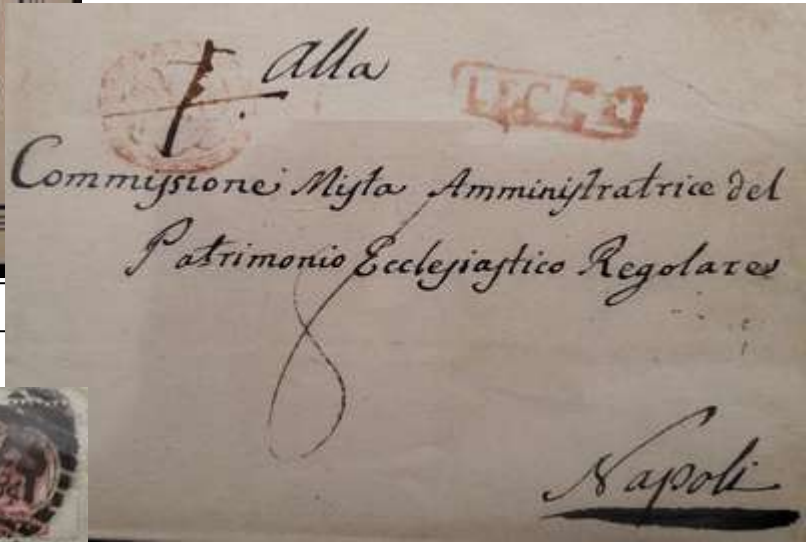 Alla
LECCE
Commissione Mista Amministratrice del
Patrimonio Ecclesiastico Regolare
Napoli